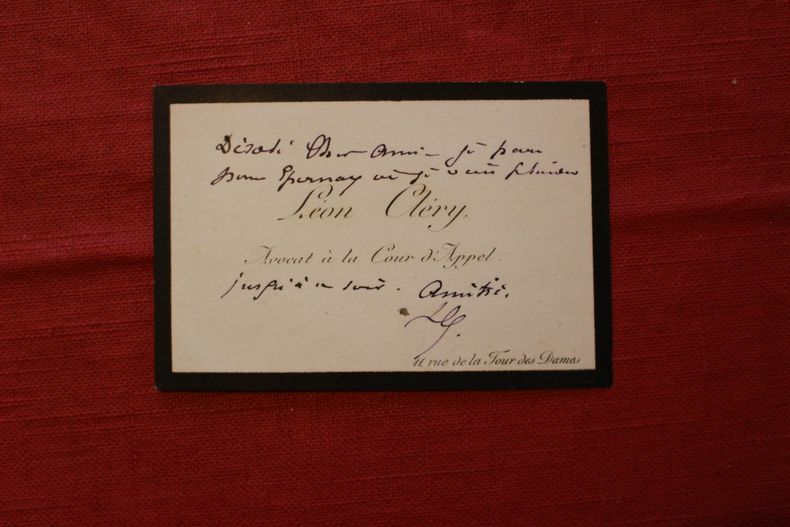 Désolé Cher Ami - je pars
pour Epernay où je vais plaider
Léon Cléry,
Avocat à la Cour d'Appel.
jusqu'à ce soir. Amitié.
11, rue de la Tour des Dames